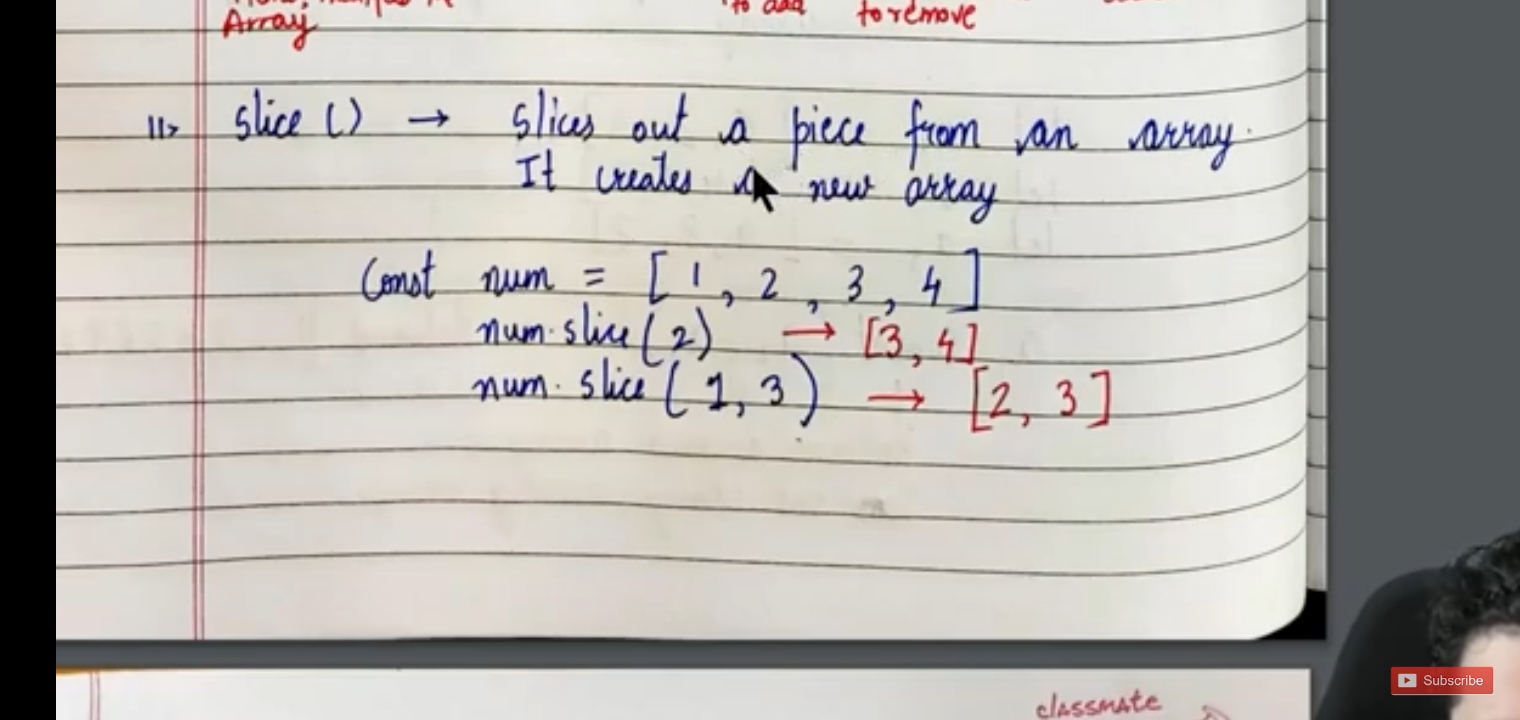 Array
to add to remove
11> slice () → slices out a piece from an array.
It creates a new array
Const num = [ 1 , 2 , 3 , 4 ]
num.slice(2) → [3, 4]
num.slice(1, 3) → [2, 3]
Subscribe
classmate